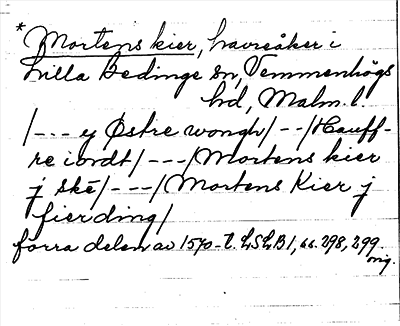 * Mortens kier, havreåker i
Lilla Bedinge sn, Vemmenhögs
hd, Malm. l.
/- - - y Østre wongh/- -/Hauff-
re iordt/- - -/Mortens kier
j ské/- - -/Mortens Kier j
fierding/
förra delen av 1570-t. LSLB1, ss. 298, 299.
orig.